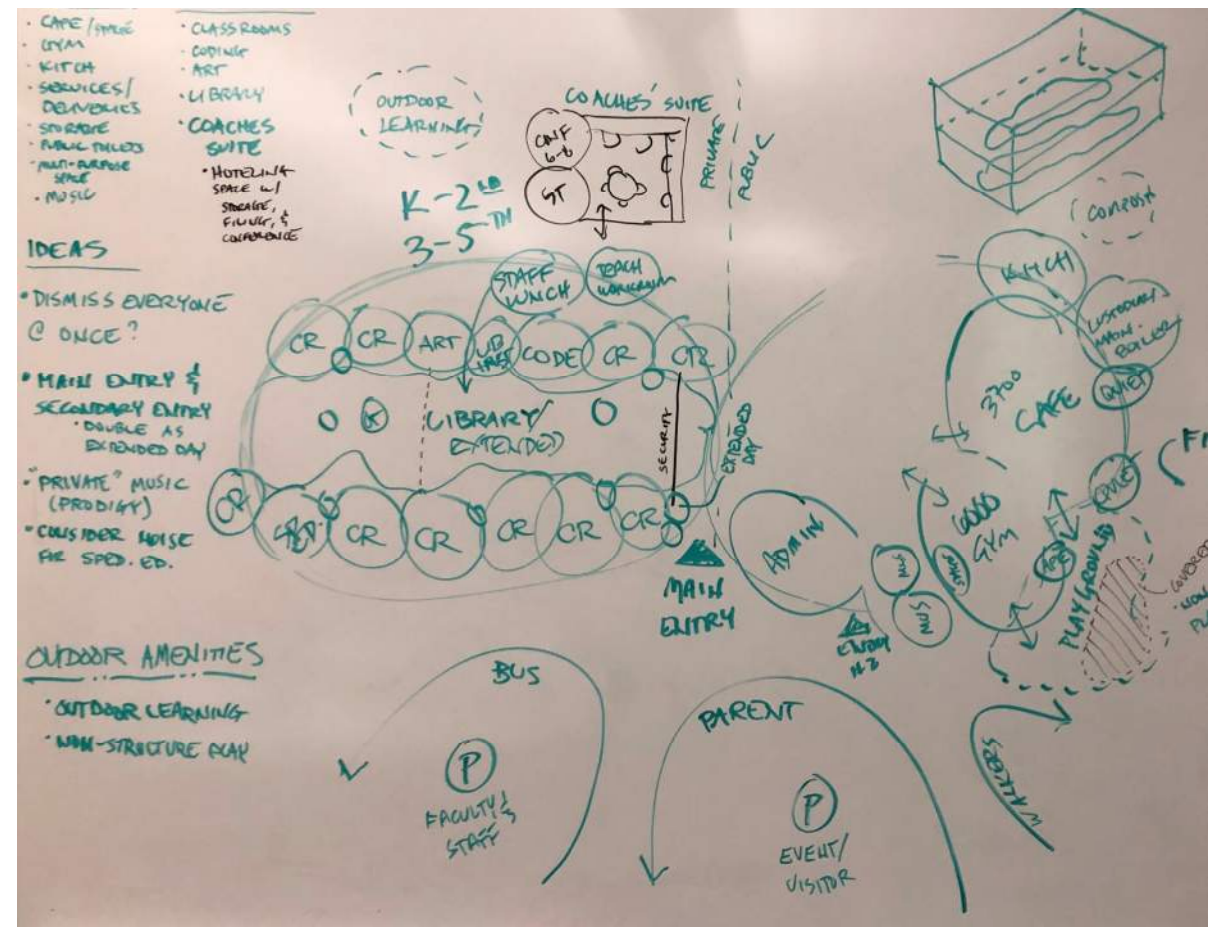 · CAFE/STAGE
· GYM
· KITCH
· SERVICES/
DELIVERIES
· STORAGE
· PUBLIC TOILETS
· MULTI-PURPOSE
SPACE
· MUSIC
· CLASSROOMS
· CODING
· ART
· LIBRARY
· COACHES
SUITE
· HOTELING
SPACE W/
STORAGE,
FILING, &
CONFERENCE
IDEAS
· DISMISS EVERYONE
@ ONCE?
· MAIN ENTRY &
SECONDARY ENTRY
· DOUBLE AS
EXTENDED DAY
· "PRIVATE" MUSIC
(PRODIGY)
· CONSIDER NOISE
FOR SPED. ED.
OUTDOOR AMENITIES
· OUTDOOR LEARNING
· NON-STRUCTURE PLAY
OUTDOOR
LEARNING
K-2ND
3-5TH
COACHES' SUITE
CONF
6-8
ST
PRIVATE
PUBLIC
STAFF
LUNCH
TEACH
WORKROOM
CR
CR
ART
CODE
CR
OTR
K
LIBRARY/
EXTENDED
SECURITY
EXTENDED
DAY
CR
CR
CR
CR
CR
CR
MAIN
ENTRY
ADMIN
ENTRY
NO. 2
MUS
MUS
COMPOST
KITCH
CUSTODIAL
MAIN
BOILER
3700
CAFE
QUIET
QUIET
6000
GYM
PLAYGROUND
COVERED
BUS
P
FACULTY &
STAFF
PARENT
P
EVENT/
VISITOR
WALKERS